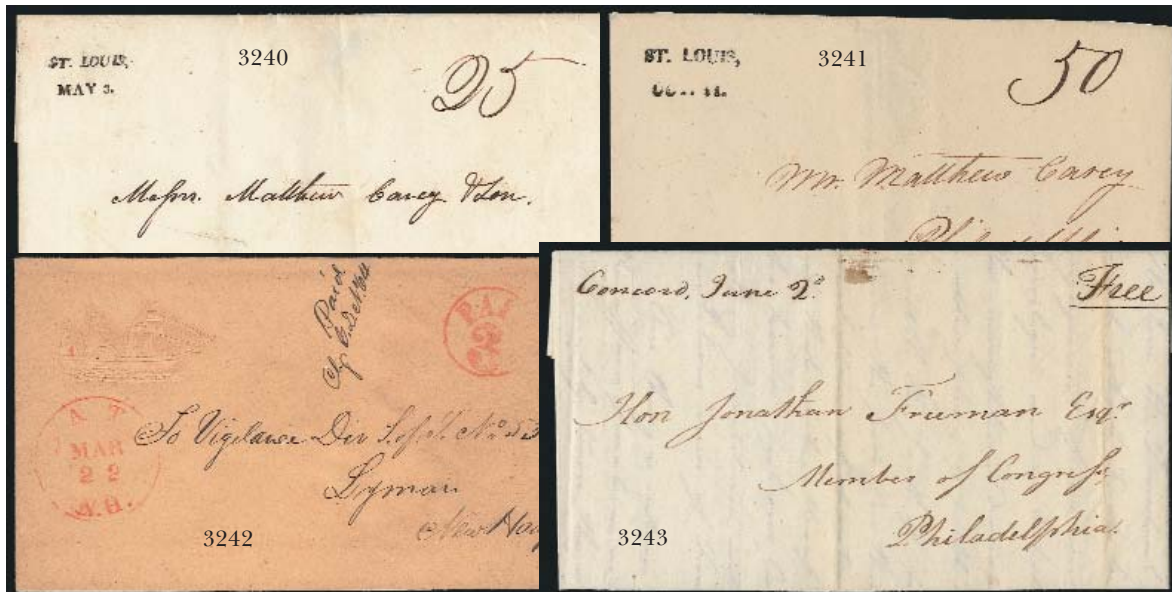 ST. LOUIS,
MAY 3.
3240
25
Messrs. Matthew Carey & Son.
ST. LOUIS,
3241
50
Mr. Matthew Carey
Paid
PAI
3
MAR
22
N.H.
To Vigilance Div S. of T. No 53
Lyman
New
3242
Concord, June 2d
Free
Hon Jonathan Freeman Esqr
Member of Congress
Philadelphia.
3243